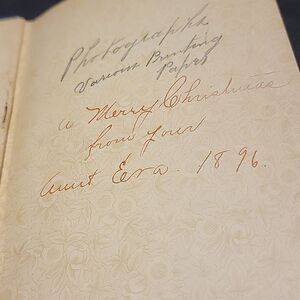 Photographs
Various Printing
Paper
a Merry Christmas
from your
Aunt Eva. 1896.